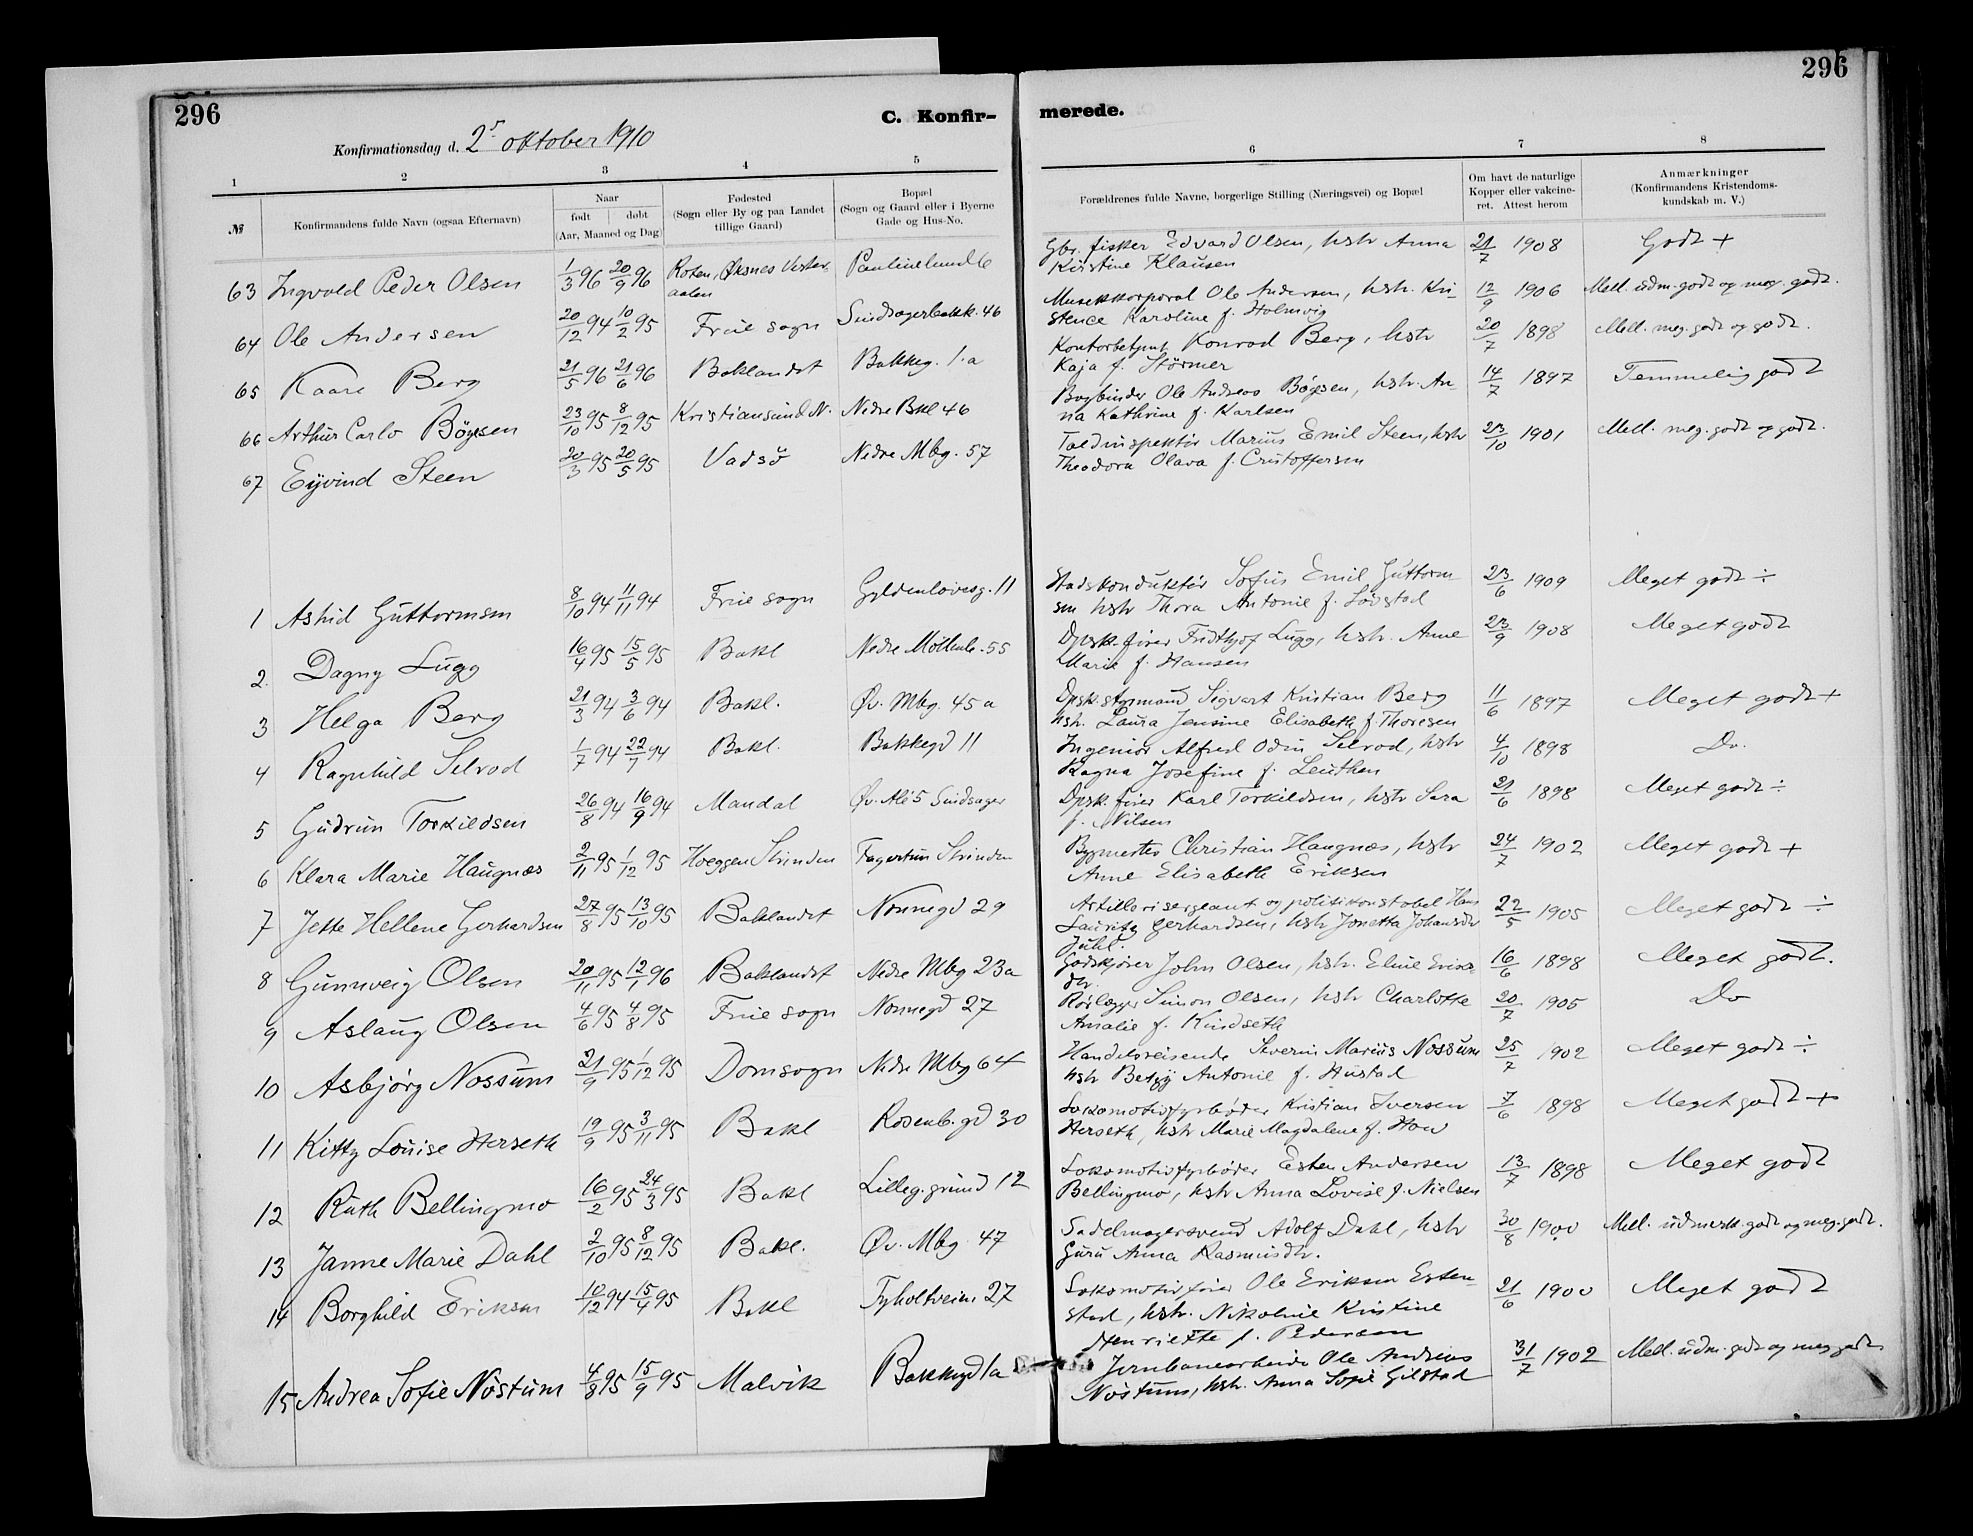 296
296
C. Konfir-
merede.
Konfirmationsdag d. 2 oktober 1910
1
2
3
4
5
6
7
8
№
Konfirmandens fulde Navn (ogsaa Efternavn)
Naar
født | døbt
(Aar, Maaned og Dag)
Fødested
(Sogn eller By og paa Landet
tillige Gaard)
Bopæl
(Sogn og Gaard eller i Byerne
Gade og Hus-No.
Forældrenes fulde Navne, borgerlige Stilling (Næringsvei) og Bopæl
Om havt de naturlige
Kopper eller vakcine-
ret. Attest herom
Anmærkninger
(Konfirmandens Kristendoms-
kundskab m. V.)
63 Ingvald Peder Olsen 1/3 96 20/9 96 Roten, Øksnes Vester- Paulinelund 6 Gbr. fisker Edvard Olsen, hstr Anna 21/7 1908 Godt +
aalen Kirstine Klausen
64 Ole Andersen 20/12 94 10/2 95 Frue sogn Sindsagerbakk. 46 Musikkorporal Ole Andersen, hstr. Kri- 12/9 1906 Mell. udm. godt og meg. godt.
stence Karoline f. Holmvig
65 Kaare Berg 21/5 96 21/6 96 Baklandet Bakkeg. 1.a Kontorbetjent Konrad Berg, hstr 20/7 1898 Mell. meg. godt og godt.
Kaja f. Störmer
66 Arthur Carlo Bögesen 23/10 95 8/12 95 Kristiansund N. Nedre Bkl 46 Bogbinder Ole Andreas Bögesen, hstr. An- 14/7 1897 Temmelig godt
na Kathrine f. Karlsen
67 Eyvind Steen 20/3 95 20/5 95 Vadsö Nedre Mbg. 57 Toldinspektör Marius Emil Steen, hstr 23/10 1901 Mell. meg. godt og godt.
Theodora Olava f. Cristoffersen
1 Astrid Guttormsen 8/10 94 11/11 94 Frue sogn Gyldenlövesg. 11 Stadskonduktör Sofus Emil Guttorm 23/6 1909 Meget godt ÷
sen hstr Thora Antonie f. Lövstad
2. Dagny Lugg 16/4 95 15/5 95 Bakl Nedre Möllenb. 55 Dpsk. förer Fridthjof Lugg, hstr. Anne 23/9 1908 Meget godt
Marie f. Hansen
3 Helga Berg 21/3 94 3/6 94 Bakl. Øv. Mbg. 45 a Dpsk. styrmand Sigvart Kristian Berg 11/6 1897 Meget godt +
hstr. Laura Jensine Elisabeth f. Thoresen
4 Ragnhild Selvod 1/7 94 22/7 94 Bakl. Bakkegd 11 Ingeniör Alfred Odin Selvod, hstr 4/10 1898 Do.
Ragna Josefine f. Leuthen
5 Gudrun Torkildsen 26/8 94 16/9 94 Mandal Øv. Alé 5 Sindsager Dpsk. förer Karl Torkildsen, hstr Sara 21/6 1898 Meget godt ÷
f. Nilsen
6 Klara Marie Haugnæs 2/11 95 1/12 95 Hoeggen Strinden Fagertun Strinden Bygmester Christian Haugnæs, hstr 24/7 1902 Meget godt +
Anne Elisabeth Eriksen
7 Jette Hellene Gerhardsen 27/8 95 13/10 95 Baklandet Nonnegd 29 Artillerisergeant og politikonstabel Hans 22/5 1905 Meget godt ÷
Lauritz Gerhardsen, hstr Jonetta Johansdr
Juhl.
8 Gunnveig Olsen 20/11 95 12/1 96 Baklandet Nedre Mbg 23a Godskjörer John Olsen, hstr. Eline Eriks- 16/6 1898 Meget godt.
dr.
9 Aslaug Olsen 4/6 95 4/8 95 Frue sogn Nonnegd 27 Rörlægger Simon Olsen, hstr Charlotte 20/7 1905 Do
Amalie f. Kindseth
10 Asbjörg Nossum 21/9 95 1/12 95 Domsogn Nedre Mbg 64 Handelsreisende Severin Marius Nossum 25/7 1902 Meget godt ÷
hstr Betzy Antonie f. Hustad
11 Kitty Louise Herseth 19/9 95 3/11 95 Bakl Rosenb. gd 30 Lokomotivfyrböder Kristian Iversen 7/6 1898 Meget godt +
Herseth, hstr Marie Magdalene f. Hov
12 Ruth Bellingmo 16/2 95 24/3 95 Bakl Lilleg. grund 12 Lokomotivfyrböder Esten Andersen 13/7 1898 Meget godt
Bellingmo, hstr Anna Lovise f. Nielsen
13 Janne Marie Dahl 2/10 95 8/12 95 Bakl. Øv. Mbg. 47 Sadelmagersvend Adolf Dahl, hstr 30/8 1900 Mell. udmerk. godt og meg. godt.
Guru Anna Rasmusdtr.
14 Borghild Eriksen 10/12 94 15/4 95 Bakl Tyholtveien 27 Lokomotivförer Ole Eriksen Esten- 21/6 1900 Meget godt
stad, hstr. Nikoline Kristine
Henriette f. Pedersen
15 Andrea Sofie Nöstum 4/8 95 15/9 95 Malvik Bakkegd 1a Jernbanearbeider Ole Andreas 31/7 1902 Mell. udm. godt og meg godt
Nöstum, hstr. Anna Sofie Gilstad